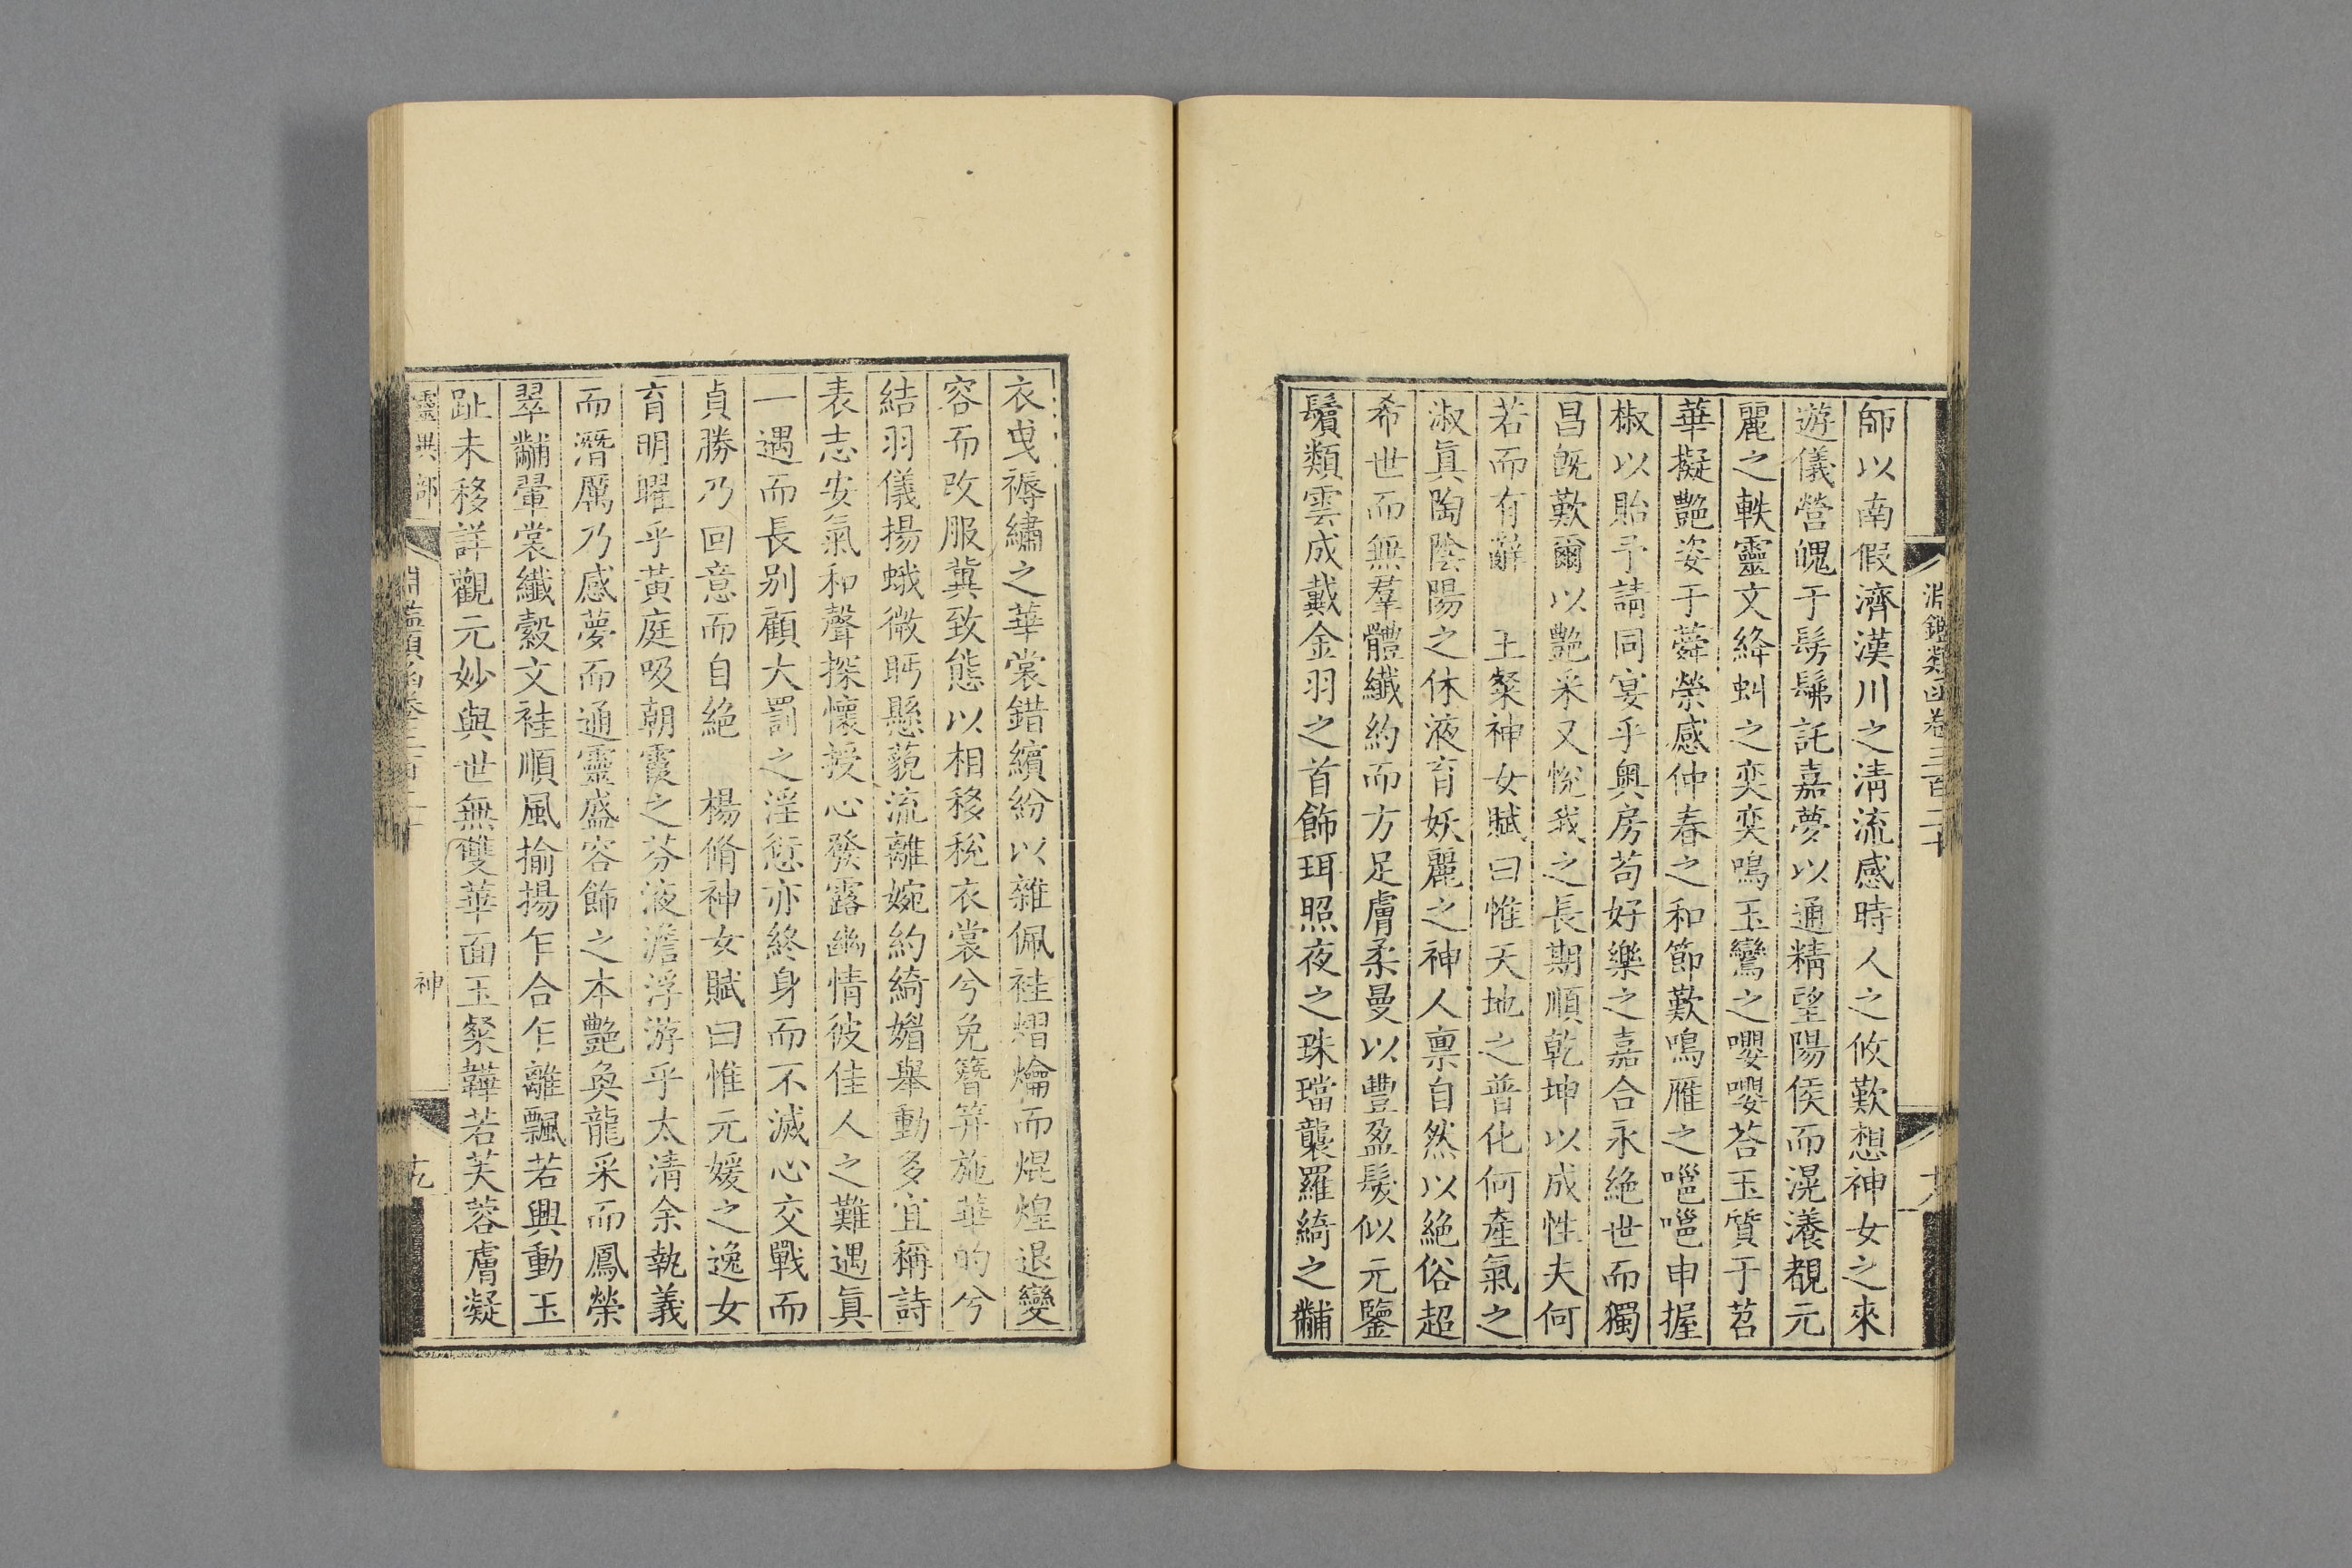 淵鑑類函卷三百二十
師以南假濟漢川之清流感時人之攸歎想神女之來
遊儀營魄于髣髴託嘉夢以通精望陽侯而滉瀁覩元
麗之軼靈文絳虯之奕奕鳴玉鸞之嚶嚶荅玉質于苕
華擬艷姿于蕣榮感仲春之和節歎鳴雁之嗈嗈申握
椒以貽予請同宴乎奧房苟好樂之嘉合永絕世而獨
昌旣歎爾以艷采又悅我之長期順乾坤以成性夫何
若而有辭 王粲神女賦曰惟天地之普化何產氣之
淑眞陶陰陽之休液育妖麗之神人稟自然以絕俗超
希世而無羣體纖約而方足膚柔曼以豐盈髮似元鑒
鬢類雲成戴金羽之首飾珥照夜之珠璫襲羅綺之黼
衣曳褥繡之華裳錯繽紛以雜佩袿熠爚而焜煌退變
容而改服冀致態以相移稅衣裳兮免簪笄施華的兮
結羽儀揚蛾微眄懸藐流離婉約綺媚舉動多宜稱詩
表志安氣和聲探懷授心發露幽情彼佳人之難遇眞
一遇而長別顧大罰之淫愆亦終身而不滅心交戰而
貞勝乃回意而自絕 楊脩神女賦曰惟元媛之逸女
育明曜乎黃庭吸朝霞之芬液澹浮游乎太清余執義
而潛厲乃感夢而通靈盛容飾之本艷奐龍采而鳳榮
翠黼翬裳纖縠文袿順風揄揚乍合乍離飄若興動玉
趾未移詳觀元妙與世無雙華面玉粲韡若芙蓉膚凝
靈異部 神